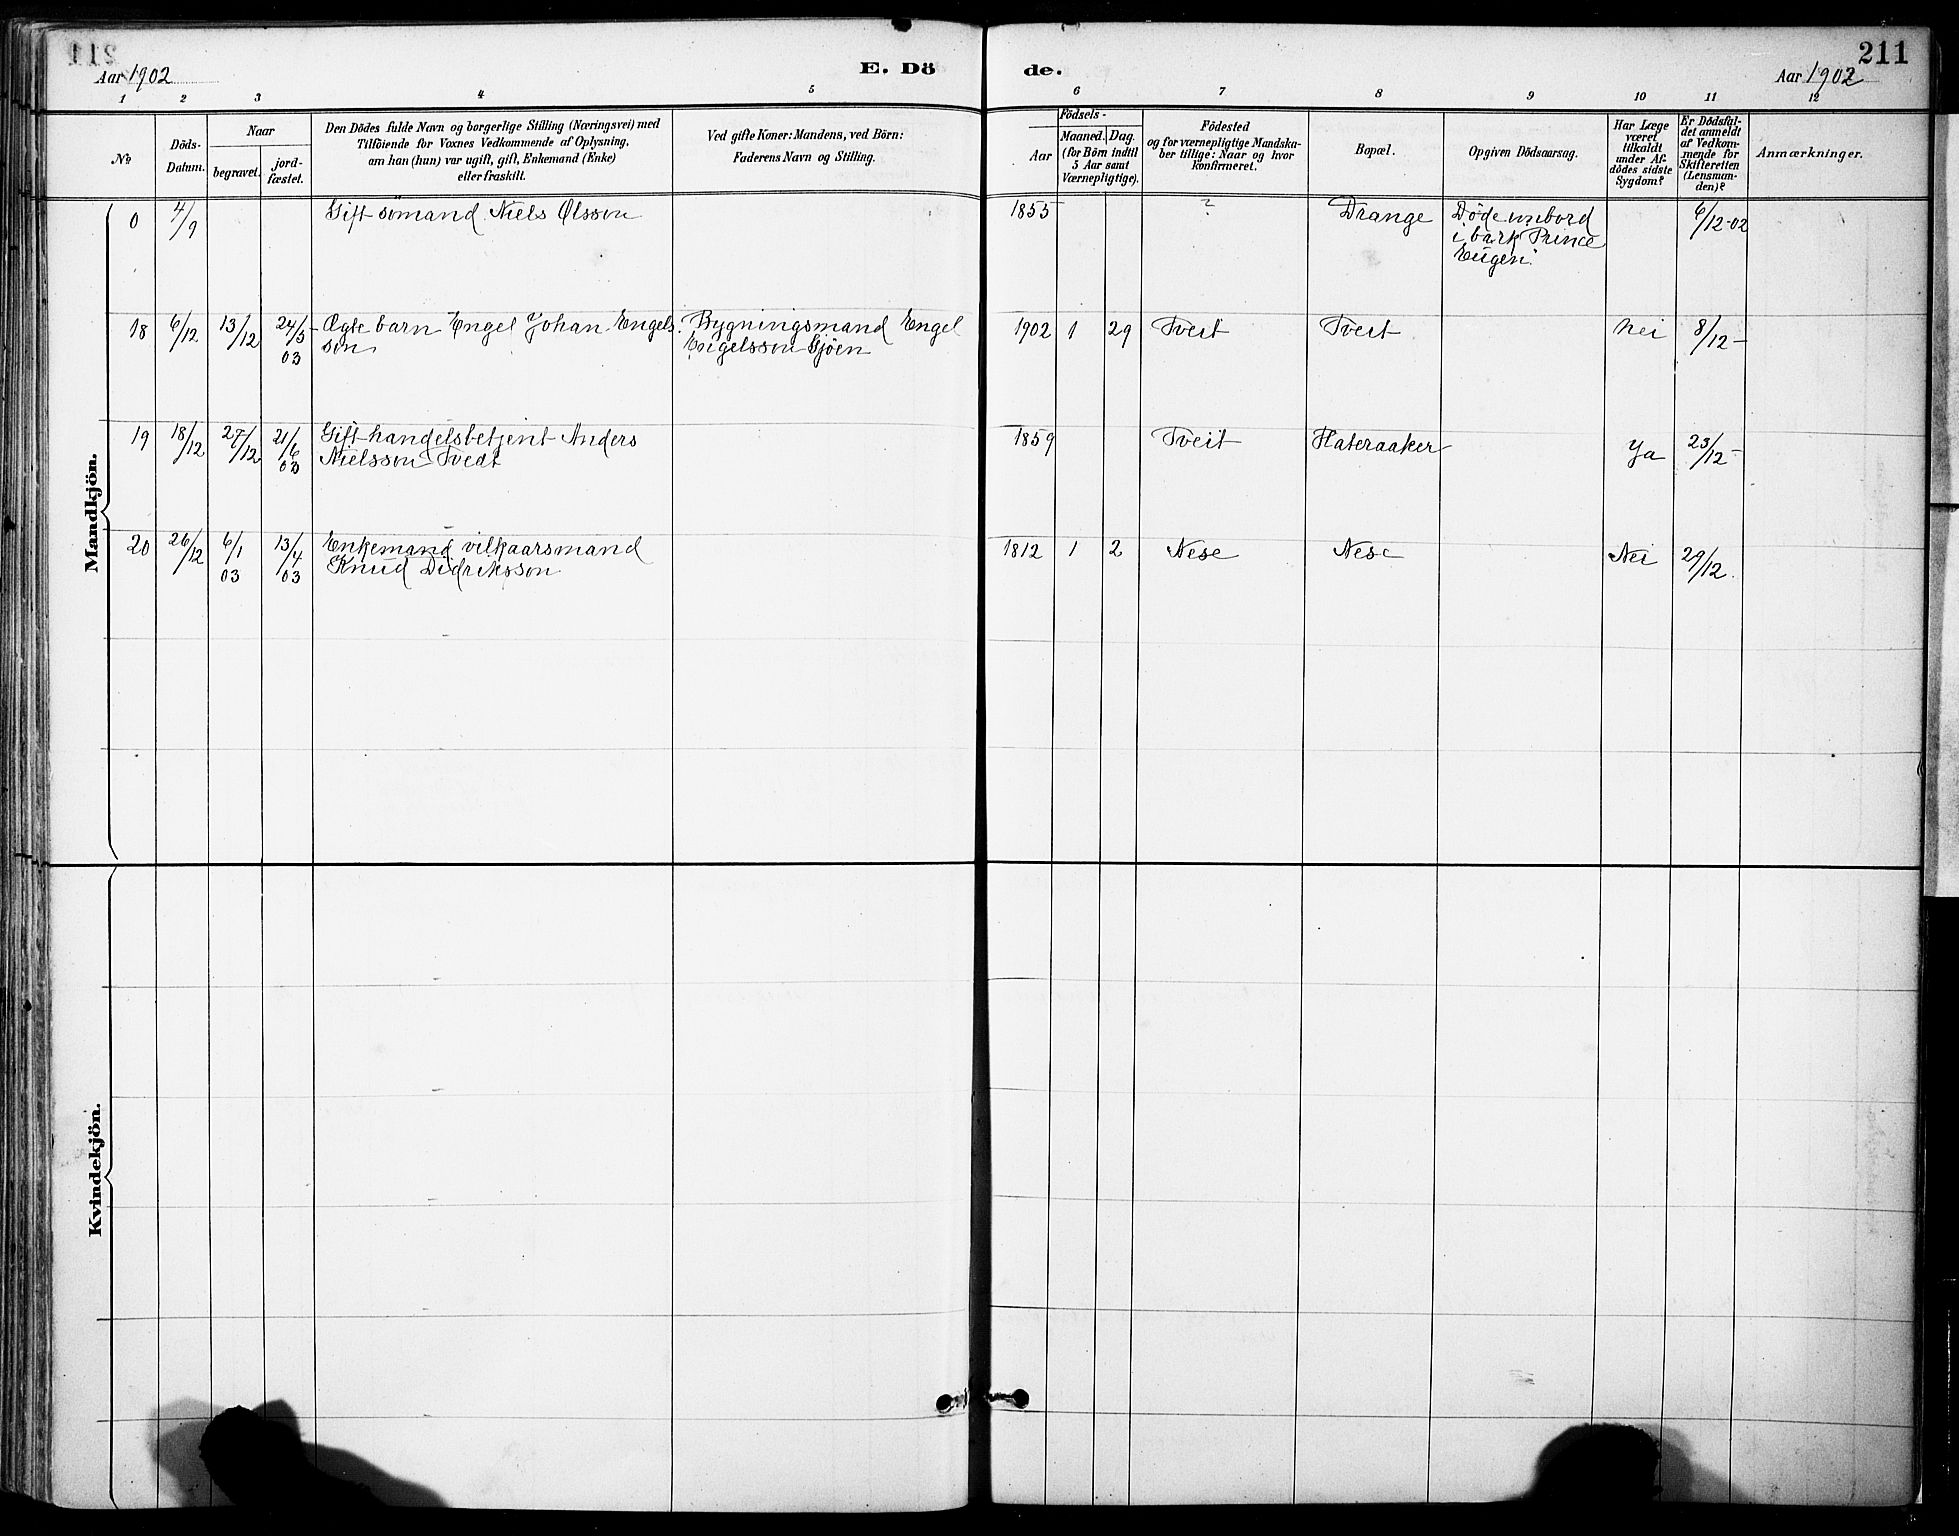 211
Aar 1902
E. Dö
de.
Aar 1902
1 2 3 4 5 6 7 8 9 10 11 12
No
Döds-
Datum.
Naar
begravet.
jord-
fæstet.
Den Dödes fulde Navn og borgerlige Stilling (Næringsvei) med
Tilföiende for Voxnes Vedkommende af Oplysning,
om han (hun) var ugift, gift, Enkemand (Enke)
eller fraskilt.
Ved gifte Koner: Mandens, ved Börn:
Faderens Navn og Stilling.
Födsels-
Aar
Maaned. Dag.
(for Börn indtil
5 Aar samt
Værnepligtige).
Födested
og for værnepligtige Mandska-
ber tillige: Naar og hvor
konfirmeret.
Bopæl.
Opgiven Dödsaarsag.
Har Læge
været
tilkaldt
under Af-
dödes sidste
Sygdom?
Er Dödsfal-
det anmeldt
af Vedkom-
mende for
Skifteretten
(Lensman-
den)?
Anmærkninger.
Mandkjön.
0 4/9 Gift sømand Niels Olsson 1855 ? Drange Døde ombord
i bark "Prince
Eugen". 6/12-02
18 6/12 13/12 24/5 03 Ægte barn Engel Johan Engels-
son Bygningsmand Engel
Engelsson Gjøen 1902 1 29 Tveit Tveit Nei 8/12-
19 18/12 27/12 21/6 03 Gift handelsbetjent Anders
Nielsson Tvedt 1859 Tveit Hateraaker Ja 23/12-
20 26/12 6/1 03 13/4 03 Enkemand vilkaarsmand
Knud Didriksson 1812 1 2 Nese Nese Nei 29/12.
Kvindekjön.